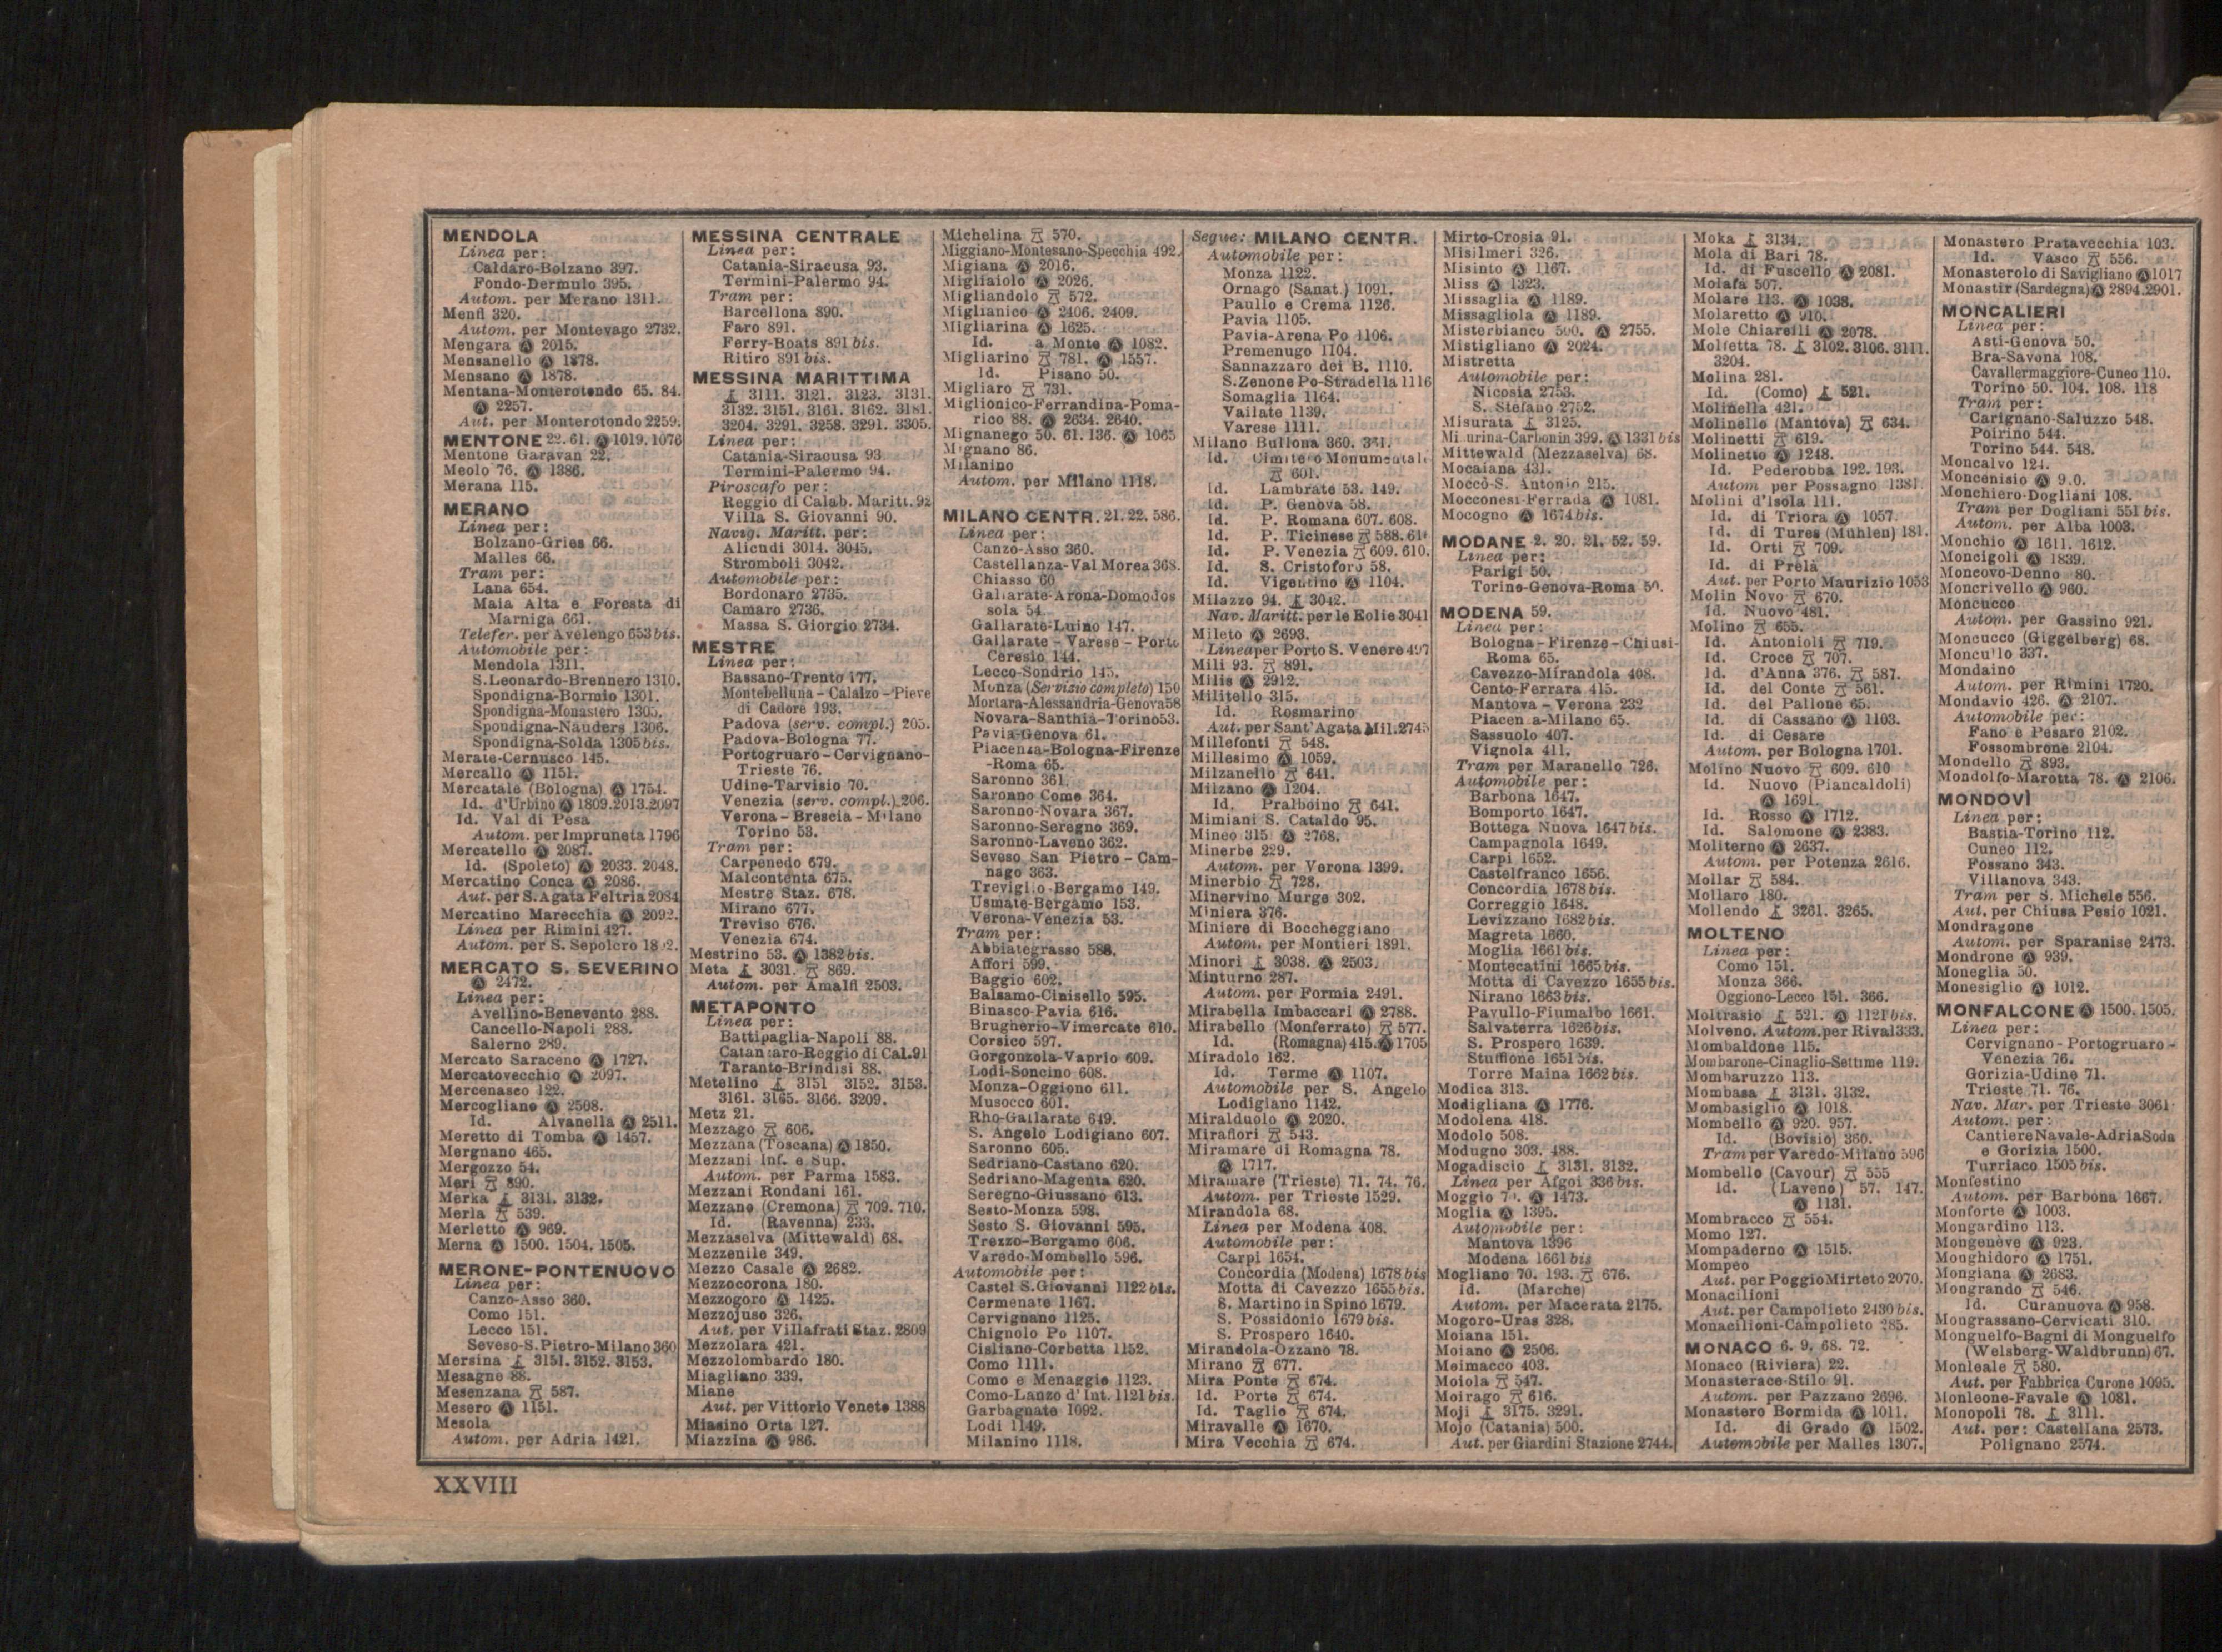 MENDOLA
Linea per:
Caldaro-Bolzano 397.
Fondo-Dermulo 395.
Autom. per Merano 1311.
Menfi 320.
Autom. per Montevago 2732.
Mengara Ⓐ 2015.
Mensanello Ⓐ 1878.
Mensano Ⓐ 1878.
Mentana-Monterotondo 65. 84.
Ⓐ 2257.
Aut. per Monterotondo 2259.
MENTONE 22. 61. Ⓐ 1019. 1076
Mentone Garavan 22.
Meolo 76. Ⓐ 1386.
Merana 115.
MERANO
Linea per:
Bolzano-Gries 66.
Malles 66.
Tram per:
Lana 654.
Maia Alta e Foresta di
Marniga 661.
Telefer. per Avelengo 653 bis.
Automobile per:
Mendola 1311.
S. Leonardo-Brennero 1310.
Spondigna-Bormio 1301.
Spondigna-Monastero 1305.
Spondigna-Nauders 1306.
Spondigna-Solda 1305 bis.
Merate-Cernusco 145.
Mercallo Ⓐ 1151.
Mercatale (Bologna) Ⓐ 1754.
Id. d'Urbino Ⓐ 1809. 2013. 2097
Id. Val di Pesa
Autom. per Impruneta 1796
Mercatello Ⓐ 2087.
Id. (Spoleto) Ⓐ 2033. 2048.
Mercatino Conca Ⓐ 2086.
Aut. per S. Agata Feltria 2084
Mercatino Marecchia Ⓐ 2092.
Linea per Rimini 427.
Autom. per S. Sepolcro
MERCATO S. SEVERINO
Ⓐ 2472.
Linea per:
Avellino-Benevento 288.
Cancello-Napoli 288.
Salerno 289.
Mercato Saraceno Ⓐ 1727.
Mercatovecchio Ⓐ 2097.
Mercenasco 122.
Mercogliano Ⓐ 2508.
Id. Alvanella Ⓐ 2511.
Meretto di Tomba Ⓐ 1457.
Mergnano 465.
Mergozzo 54.
Meri 890.
Merka 3131. 3132.
Merla 539.
Merletto Ⓐ 969.
Merna Ⓐ 1500. 1504. 1505.
MERONE-PONTENUOVO
Linea per:
Canzo-Asso 360.
Como 151.
Lecco 151.
Seveso-S. Pietro-Milano 360
Mersina 3151. 3152. 3153.
Mesagne 88.
Mesenzana 587.
Mesero Ⓐ 1151.
Mesola
Autom. per Adria 1421.
MESSINA CENTRALE
Linea per:
Catania-Siracusa 93.
Termini-Palermo 94.
Tram per:
Barcellona 890.
Faro 891.
Ferry-Boats 891 bis.
Ritiro 891 bis.
MESSINA MARITTIMA
3111. 3121. 3123. 3131.
3132. 3151. 3161. 3162. 3181.
3204. 3291. 3258. 3291. 3305.
Linea per:
Catania-Siracusa 93
Termini-Palermo 94.
Piroscafo per:
Reggio di Calab. Maritt. 92
Villa S. Giovanni 90.
Navig. Maritt. per:
Alicudi 3014. 3045.
Stromboli 3042.
Automobile per:
Bordonaro 2735.
Camaro 2736.
Massa S. Giorgio 2734.
MESTRE
Linea per:
Bassano-Trento 177.
Montebelluna - Calalzo - Pieve
di Cadore 193.
Padova (serv. compl.) 205.
Padova-Bologna 77.
Portogruaro - Cervignano-
Trieste 76.
Udine-Tarvisio 70.
Venezia (serv. compl.) 206.
Verona - Brescia - Milano
Torino 53.
Tram per:
Carpenedo 679.
Malcontenta 675.
Mestre Staz. 678.
Mirano 677.
Treviso 676.
Venezia 674.
Mestrino 53. Ⓐ 1382 bis.
Meta 3031. 869.
Autom. per Amalfi 2503.
METAPONTO
Linea per:
Battipaglia-Napoli 88.
Catanzaro-Reggio di Cal. 91
Taranto-Brindisi 88.
Metelino 3151 3152. 3153.
3161. 3165. 3166. 3209.
Metz 21.
Mezzago 606.
Mezzana (Toscana) Ⓐ 1850.
Mezzani Inf. e Sup.
Autom. per Parma 1583.
Mezzani Rondani 161.
Mezzano (Cremona) 709. 710.
Id. (Ravenna) 233.
Mezzaselva (Mittewald) 68.
Mezzenile 349.
Mezzo Casale Ⓐ 2682.
Mezzocorona 180.
Mezzogoro Ⓐ 1425.
Mezzojuso 326.
Aut. per Villafrati Staz. 2809
Mezzolara 421.
Mezzolombardo 180.
Miagliano 339.
Miane
Aut. per Vittorio Veneto 1388
Miasino Orta 127.
Miazzina Ⓐ 986.
Michelina 570.
Miggiano-Montesano-Specchia 492.
Migiana Ⓐ 2016.
Migliaiolo Ⓐ 2026.
Migliandolo 572.
Miglianico Ⓐ 2406. 2409.
Migliarina Ⓐ 1625.
Id. a Monte Ⓐ 1082.
Migliarino 781. Ⓐ 1557.
Id. Pisano 50.
Migliaro 731.
Miglionico-Ferrandina-Poma-
rico 88. Ⓐ 2634. 2640.
Mignanego 50. 61. 136. Ⓐ 1065
Mignano 86.
Milanino
Autom. per Milano 1118.
MILANO CENTR. 21. 22. 586.
Linea per:
Canzo-Asso 360.
Castellanza-Val Morea 368.
Chiasso 60
Gallarate-Arona-Domodos
sola 54.
Gallarate-Luino 147.
Gallarate - Varese - Porto
Ceresio 144.
Lecco-Sondrio 145.
Monza (Servizio completo) 150
Mortara-Alessandria-Genova 58
Novara-Santhià-Torino 53.
Pavia-Genova 61.
Piacenza-Bologna-Firenze
-Roma 65.
Saronno 361.
Saronno Como 364.
Saronno-Novara 367.
Saronno-Seregno 369.
Saronno-Laveno 362.
Seveso San Pietro - Cam-
nago 363.
Treviglio-Bergamo 149.
Usmate-Bergamo 153.
Verona-Venezia 53.
Tram per:
Abbiategrasso 588.
Affori 599.
Baggio 602.
Balsamo-Cinisello 595.
Binasco-Pavia 616.
Brugherio-Vimercate 610.
Corsico 597.
Gorgonzola-Vaprio 609.
Lodi-Soncino 608.
Monza-Oggiono 611.
Musocco 601.
Rho-Gallarate 649.
S. Angelo Lodigiano 607.
Saronno 605.
Sedriano-Castano 620.
Sedriano-Magenta 620.
Seregno-Giussano 613.
Sesto-Monza 598.
Sesto S. Giovanni 595.
Trezzo-Bergamo 606.
Varedo-Mombello 596.
Automobile per:
Castel S. Giovanni 1122 bis.
Cermenate 1167.
Cervignano 1125.
Chignolo Po 1107.
Cisliano-Corbetta 1152.
Como 1111.
Como e Menaggio 1123.
Como-Lanzo d' Int. 1121 bis.
Garbagnate 1092.
Lodi 1149.
Milanino 1118.
Segue: MILANO CENTR.
Automobile per:
Monza 1122.
Ornago (Sanat.) 1091.
Paullo e Crema 1126.
Pavia 1105.
Pavia-Arena Po 1106.
Premenugo 1104.
Sannazzaro dei B. 1110.
S. Zenone Po-Stradella 1116
Somaglia 1164.
Vailate 1139.
Varese 1111.
Milano Bullona 360. 361.
Id. Cimitero Monumentale
601.
Id. Lambrate 53. 149.
Id. P. Genova 58.
Id. P. Romana 607. 608.
Id. P. Ticinese 588.
Id. P. Venezia 609. 610.
Id. S. Cristoforo 58.
Id. Vigentino Ⓐ 1104.
Milazzo 94. 3042.
Nav. Maritt. per le Eolie 3041
Mileto Ⓐ 2693.
Linea per Porto S. Venere 497
Mili 93. 891.
Milis Ⓐ 2912.
Militello 315.
Id. Rosmarino
Aut. per Sant'Agata Mil. 2745
Millefonti 548.
Millesimo Ⓐ 1059.
Milzanello 641.
Milzano Ⓐ 1204.
Id. Pralboino 641.
Mimiani S. Cataldo 95.
Mineo 315 Ⓐ 2768.
Minerbe 229.
Autom. per Verona 1399.
Minerbio 728.
Minervino Murge 302.
Miniera 376.
Miniere di Boccheggiano
Autom. per Montieri 1891.
Minori 3038. Ⓐ 2503.
Minturno 287.
Autom. per Formia 2491.
Mirabella Imbaccari Ⓐ 2788.
Mirabello (Monferrato) 577.
Id. (Romagna) 415. Ⓐ 1705
Miradolo 162.
Id. Terme Ⓐ 1107.
Automobile per S. Angelo
Lodigiano 1142.
Miralduolo Ⓐ 2020.
Mirafiori 543.
Miramare di Romagna 78.
Ⓐ 1717.
Miramare (Trieste) 71. 74. 76.
Autom. per Trieste 1529.
Mirandola 68.
Linea per Modena 408.
Automobile per:
Carpi 1654.
Concordia (Modena) 1678 bis
Motta di Cavezzo 1655 bis.
S. Martino in Spino 1679.
S. Possidonio 1679 bis.
S. Prospero 1640.
Mirandola-Ozzano 78.
Mirano 677.
Mira Ponte 674.
Id. Porte 674.
Id. Taglio 674.
Miravalle Ⓐ 1670.
Mira Vecchia 674.
Mirto-Crosia 91.
Misilmeri 326.
Misinto Ⓐ 1167.
Miss Ⓐ 1323.
Missaglia Ⓐ 1189.
Missagliola Ⓐ 1189.
Misterbianco 500. Ⓐ 2755.
Mistigliano Ⓐ 2024.
Mistretta
Automobile per:
Nicosia 2753.
S. Stefano 2752.
Misurata 3125.
Misurina-Carbonin 399. Ⓐ 1331 bis
Mittewald (Mezzaselva) 68.
Mocaiana 431.
Moccò-S. Antonio 215.
Mocconesi-Ferrada Ⓐ 1081.
Mocogno Ⓐ 1674 bis.
MODANE 2. 20. 21. 52. 59.
Linea per:
Parigi 50.
Torino-Genova-Roma 50.
MODENA 59.
Linea per:
Bologna - Firenze - Chiusi-
Roma 65.
Cavezzo-Mirandola 408.
Cento-Ferrara 415.
Mantova - Verona 232
Piacenza-Milano 65.
Sassuolo 407.
Vignola 411.
Tram per Maranello 726.
Automobile per:
Barbona 1647.
Bomporto 1647.
Bottega Nuova 1647 bis.
Campagnola 1649.
Carpi 1652.
Castelfranco 1656.
Concordia 1678 bis.
Correggio 1648.
Levizzano 1682 bis.
Magreta 1660.
Moglia 1661 bis.
Montecatini 1665 bis.
Motta di Cavezzo 1655 bis.
Nirano 1663 bis.
Pavullo-Fiumalbo 1661.
Salvaterra 1626 bis.
S. Prospero 1639.
Stuffione 1651 bis.
Torre Maina 1662 bis.
Modica 313.
Modigliana Ⓐ 1776.
Modolena 418.
Modolo 508.
Modugno 303. 488.
Mogadiscio 3131. 3132.
Linea per Afgoi 336 bis.
Moggio Ⓐ 1473.
Moglia Ⓐ 1395.
Automobile per:
Mantova 1396
Modena 1661 bis
Mogliano 70. 193. 676.
Id. (Marche)
Autom. per Macerata 2175.
Mogoro-Uras 328.
Moiana 151.
Moiano Ⓐ 2506.
Moimacco 403.
Moiola 547.
Moirago 616.
Moji 3175. 3291.
Mojo (Catania) 500.
Aut. per Giardini Stazione 2744.
Moka 3134.
Mola di Bari 78.
Id. di Fuscello Ⓐ 2081.
Molafa 507.
Molare 113. Ⓐ 1038.
Molaretto Ⓐ 910.
Mole Chiarelli Ⓐ 2078.
Molfetta 78. 3102. 3106. 3111.
3204.
Molina 281.
Id. (Como) 521.
Molinella 421.
Molinello (Mantova) 634.
Molinetti 619.
Molinetto Ⓐ 1248.
Id. Pederobba 192. 193.
Autom per Possagno 1381
Molini d'Isola 111.
Id. di Triora Ⓐ 1057.
Id. di Tures (Muhlen) 181.
Id. Orti 709.
Id. di Prelà
Aut. per Porto Maurizio 1053
Molin Novo 670.
Id. Nuovo 481.
Molino 655.
Id. Antonioli 719.
Id. Croce 707.
Id. d'Anna 376. 587.
Id. del Conte 561.
Id. del Pallone 65.
Id. di Cassano Ⓐ 1103.
Id. di Cesare
Autom. per Bologna 1701.
Molino Nuovo 609. 610
Id. Nuovo (Piancaldoli)
Ⓐ 1691.
Id. Rosso Ⓐ 1712.
Id. Salomone Ⓐ 2383.
Moliterno Ⓐ 2637.
Autom. per Potenza 2616.
Mollar 584.
Mollaro 180.
Mollendo 3261. 3265.
MOLTENO
Linea per:
Como 151.
Monza 366.
Oggiono-Lecco 151. 366.
Moltrasio 521. Ⓐ 1121 bis.
Molveno. Autom. per Riva 1333.
Mombaldone 115.
Mombarone-Cinaglio-Settime 119.
Mombaruzzo 113.
Mombasa 3131. 3132.
Mombasiglio Ⓐ 1018.
Mombello Ⓐ 920. 957.
Id. (Bovisio) 360.
Tram per Varedo-Milano 596
Mombello (Cavour) 555
Id. (Laveno) 57. 147.
Ⓐ 1131.
Mombracco 554.
Momo 127.
Mompaderno Ⓐ 1515.
Mompeo
Aut. per Poggio Mirteto 2070.
Monacilioni
Aut. per Campolieto 2430 bis.
Monacilioni-Campolieto 285.
MONACO 6. 9. 68. 72.
Monaco (Riviera) 22.
Monasterace-Stilo 91.
Autom. per Pazzano 2696.
Monastero Bormida Ⓐ 1011.
Id. di Grado Ⓐ 1502.
Automobile per Malles 1307.
Monastero Pratavecchia 103.
Id. Vasco 556.
Monasterolo di Savigliano Ⓐ 1017
Monastir (Sardegna) Ⓐ 2894. 2901.
MONCALIERI
Linea per:
Asti-Genova 50.
Bra-Savona 108.
Cavallermaggiore-Cuneo 110.
Torino 50. 104. 108. 118
Tram per:
Carignano-Saluzzo 548.
Poirino 544.
Torino 544. 548.
Moncalvo 124.
Moncenisio Ⓐ
Monchiero-Dogliani 108.
Tram per Dogliani 551 bis.
Autom. per Alba 1003.
Monchio Ⓐ 1611. 1612.
Moncigoli Ⓐ 1839.
Moncovo-Denno 80.
Moncrivello Ⓐ 960.
Moncucco
Autom. per Gassino 921.
Moncucco (Giggelberg) 68.
Moncullo 337.
Mondaino
Autom. per Rimini 1720.
Mondavio 426. Ⓐ 2107.
Automobile per:
Fano e Pesaro 2102.
Fossombrone 2104.
Mondello 893.
Mondolfo-Marotta 78. Ⓐ 2106.
MONDOVÌ
Linea per:
Bastia-Torino 112.
Cuneo 112.
Fossano 343.
Villanova 343.
Tram per S. Michele 556.
Aut. per Chiusa Pesio 1021.
Mondragone
Autom. per Sparanise 2473.
Mondrone Ⓐ 939.
Moneglia 50.
Monesiglio Ⓐ 1012.
MONFALCONE Ⓐ 1500. 1505.
Linea per:
Cervignano - Portogruaro -
Venezia 76.
Gorizia-Udine 71.
Trieste 71. 76.
Nav. Mar. per Trieste 3061
Autom. per:
Cantiere Navale-Adria Soda
e Gorizia 1500.
Turriaco 1505 bis.
Monfestino
Autom. per Barbona 1667.
Monforte Ⓐ 1003.
Mongardino 113.
Mongenève Ⓐ 923.
Monghidoro Ⓐ 1751.
Mongiana Ⓐ 2683.
Mongrando 546.
Id. Curanuova Ⓐ 958.
Mongrassano-Cervicati 310.
Monguelfo-Bagni di Monguelfo
(Welsberg-Waldbrunn) 67.
Monleale 580.
Aut. per Fabbrica Curone 1095.
Monleone-Favale Ⓐ 1081.
Monopoli 78. 3111.
Aut. per: Castellana 2573.
Polignano 2574.
XXVIII